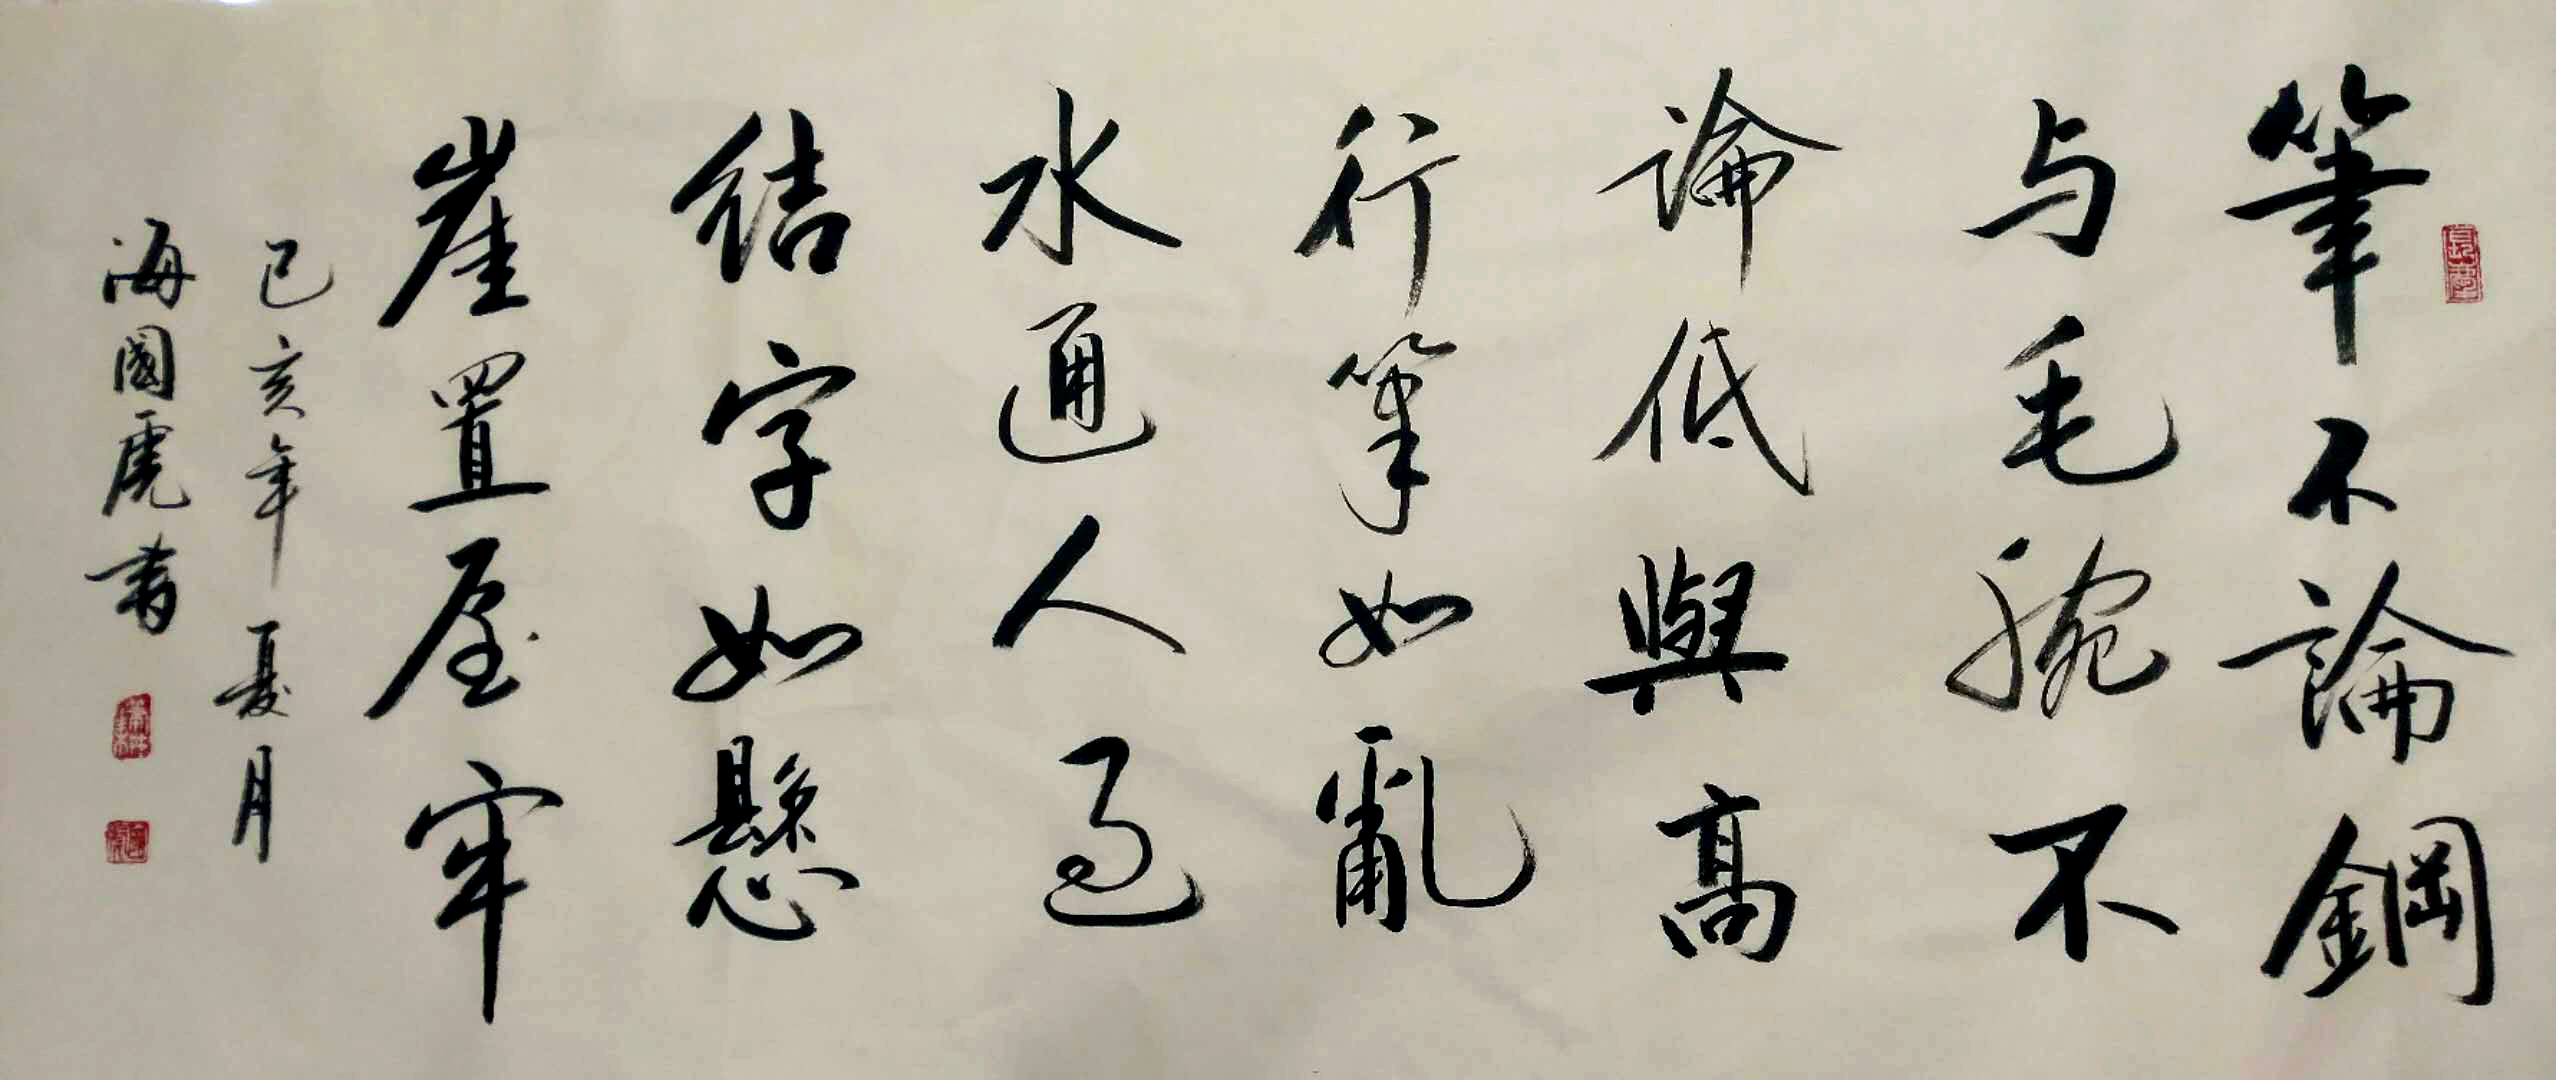 筆不論鋼
与毛腕不
論低與高
行筆如亂
水通人過
結字如懸
崖置屋牢
己亥年夏月
海國虎書